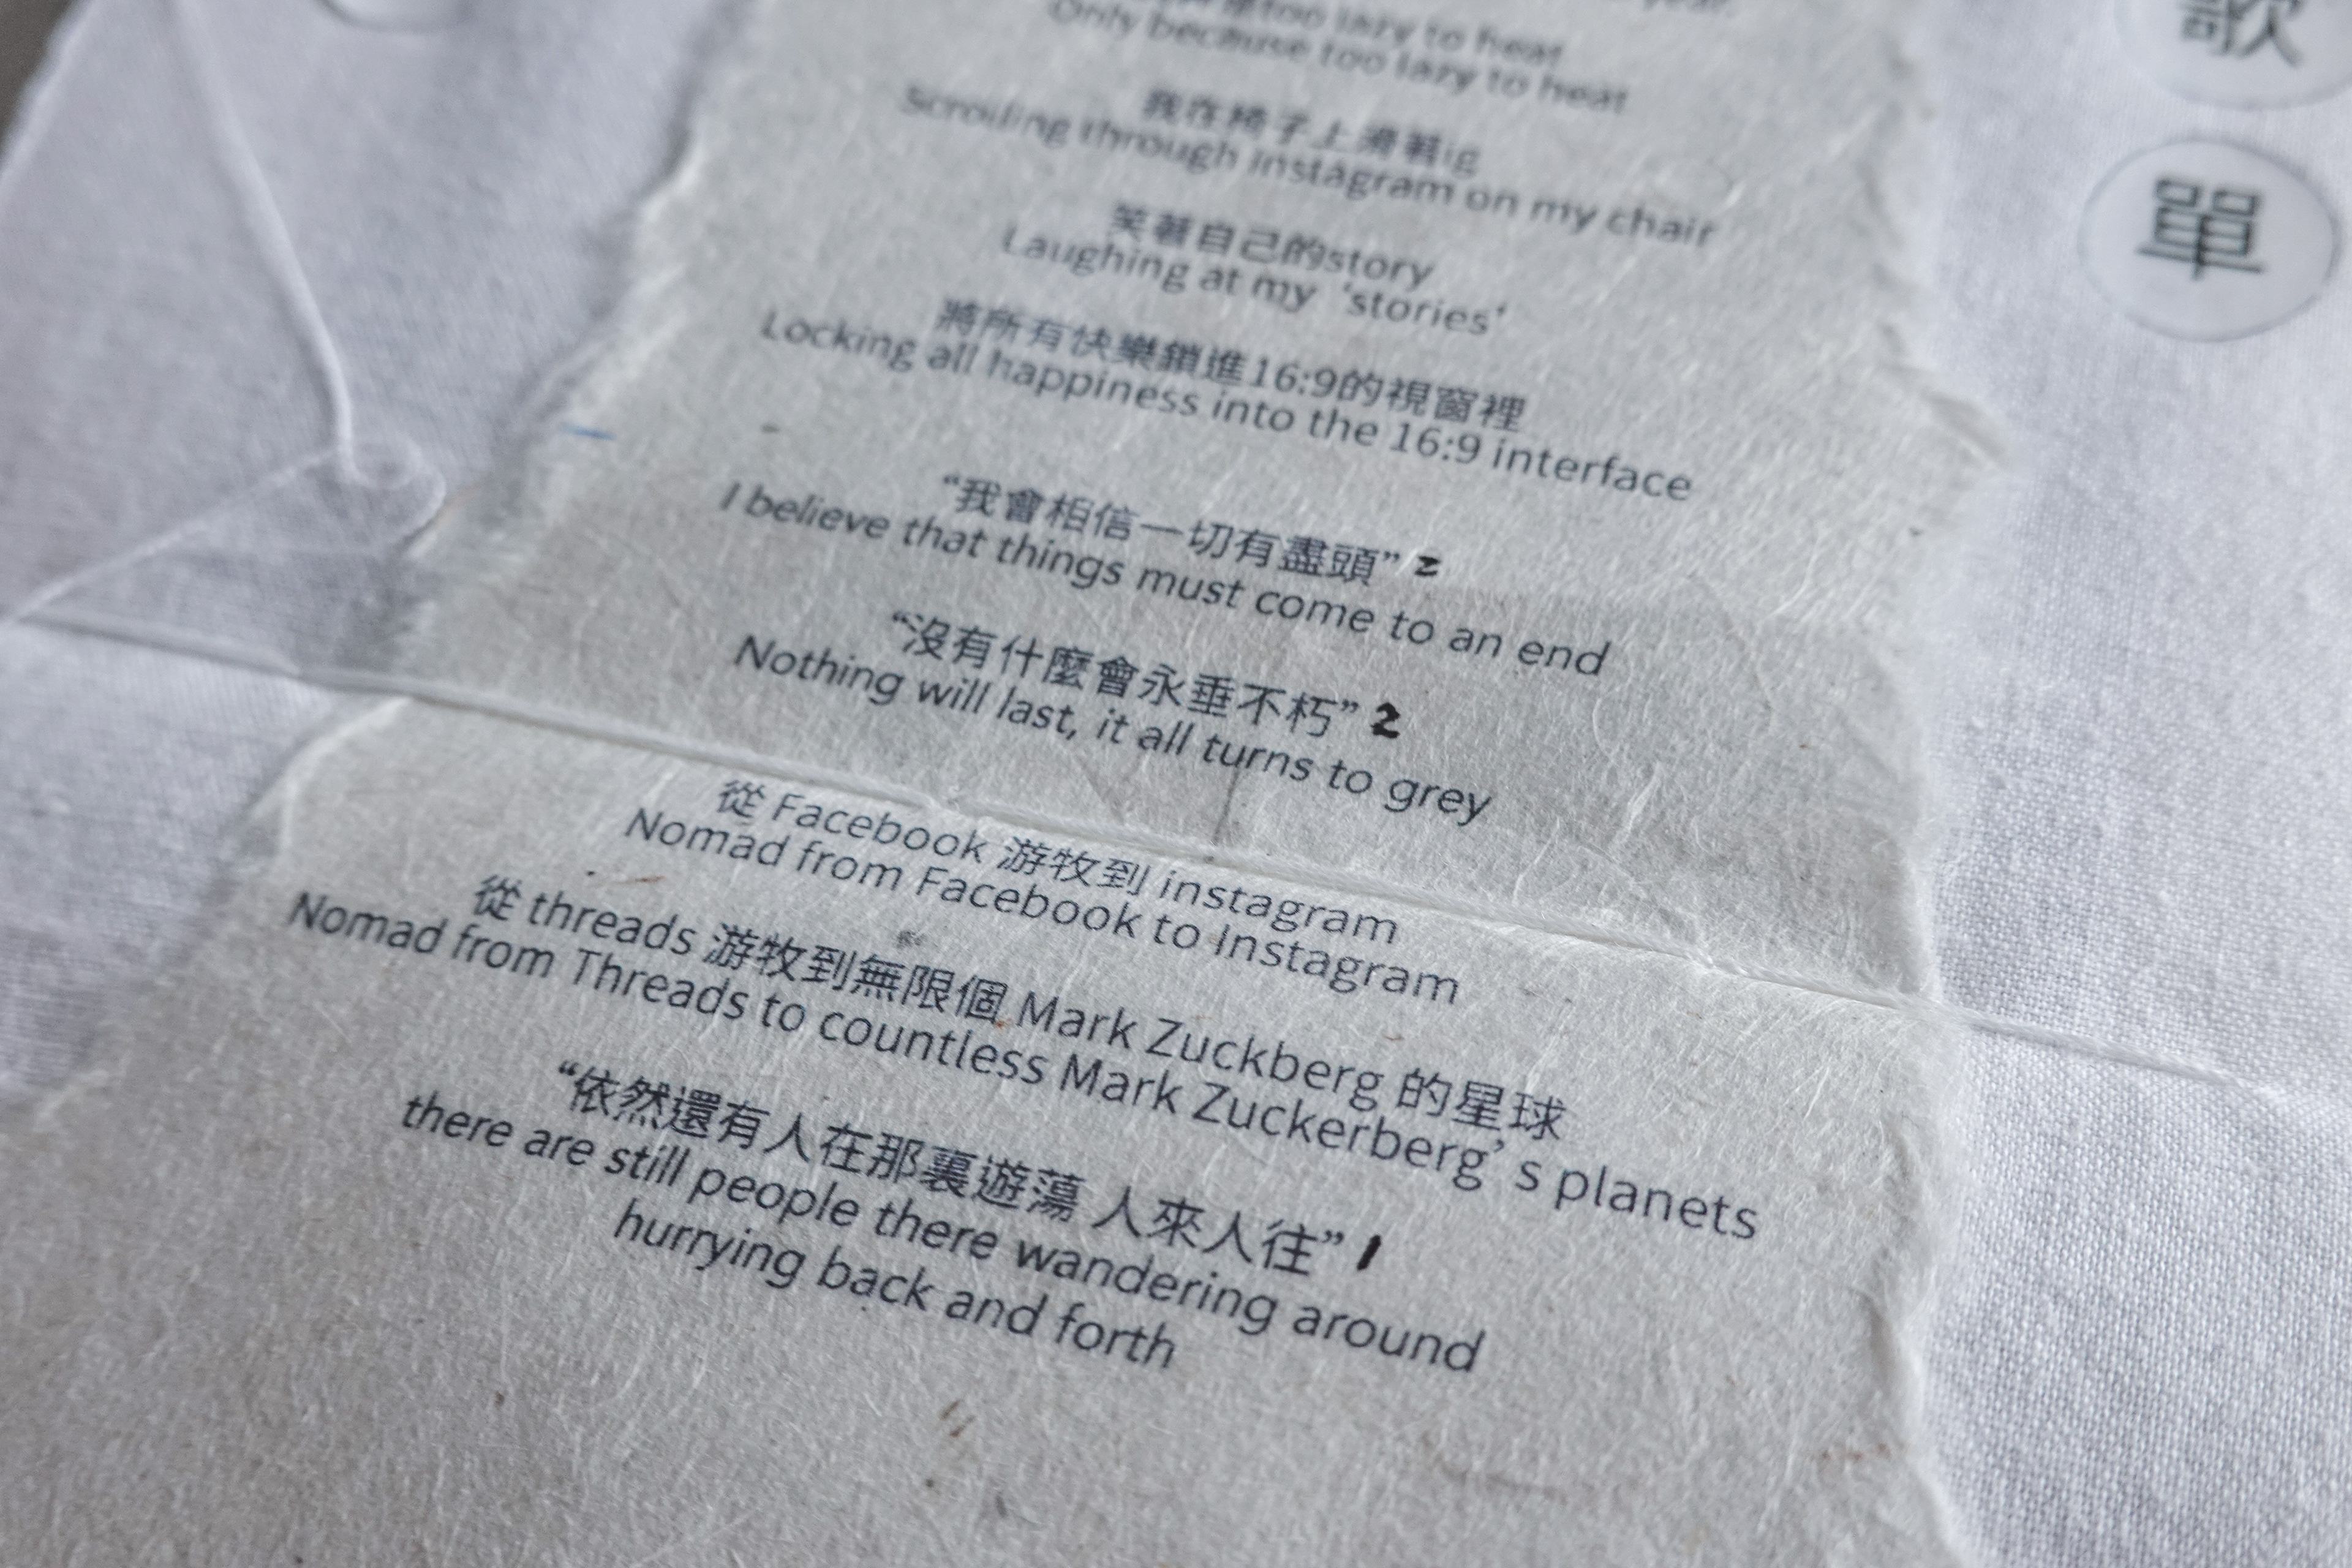 year.
too lazy to heat
Only because too lazy to heat
我在椅子上滑著ig
Scrolling through instagram on my chair
笑著自己的story
Laughing at my ‘stories’
將所有快樂鎖進16:9的視窗裡
Locking all happiness into the 16:9 interface
“我會相信一切有盡頭” 2
I believe that things must come to an end
“沒有什麼會永垂不朽” 2
Nothing will last, it all turns to grey
從 Facebook 游牧到 instagram
Nomad from Facebook to Instagram
從 threads 游牧到無限個 Mark Zuckberg 的星球
Nomad from Threads to countless Mark Zuckerberg’s planets
“依然還有人在那裏遊蕩 人來人往” 1
there are still people there wandering around
hurrying back and forth
歌
單